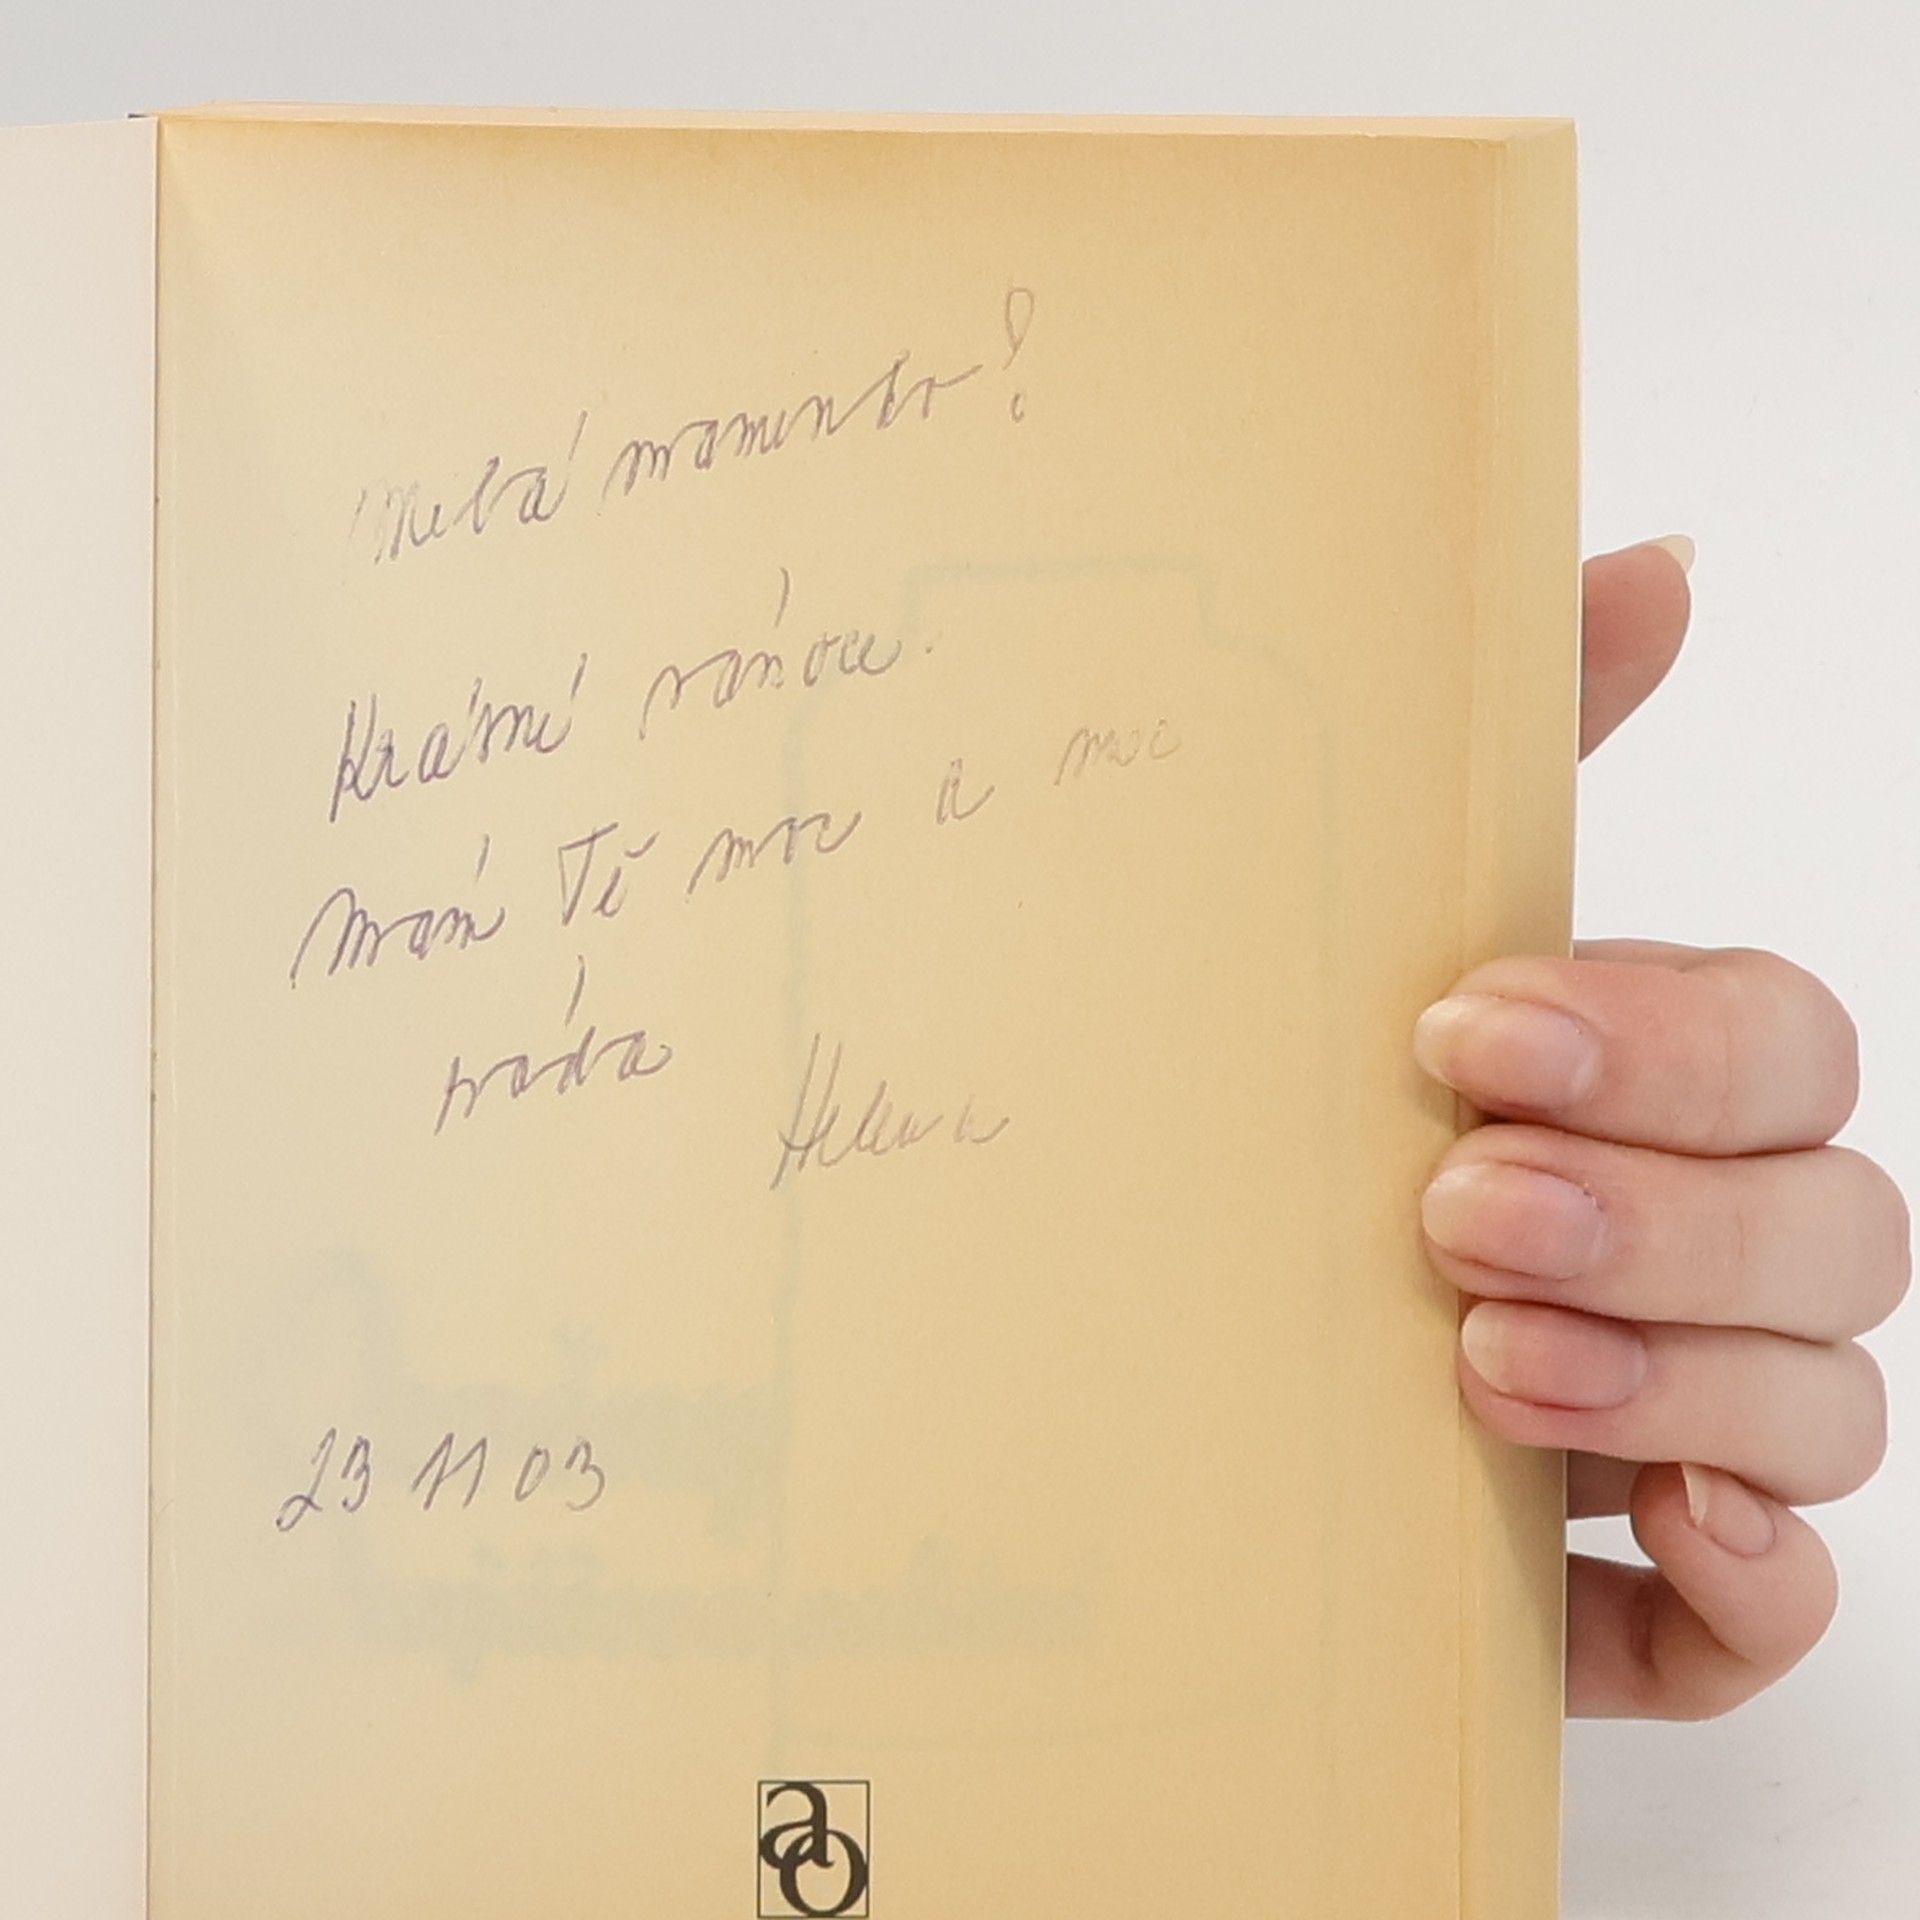 Milá maminko!
Krásné vánoce.
mám Tě moc a moc
ráda Helena
23 11 03
ao